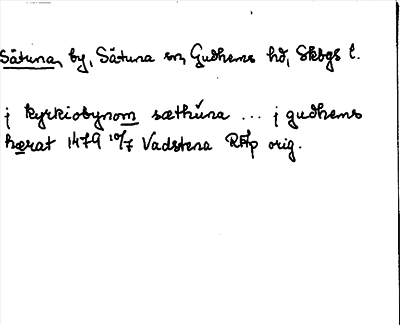 Såtuna, by, Såtuna sn, Gudhems hd, Skbgs l.
j kyrkiobynom sæthuna ... j gudhems
hærat 1479 10/7 Vadstena RAp orig.